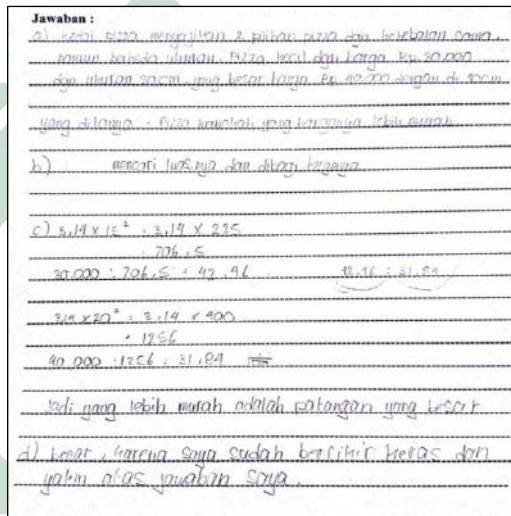 Jawaban :
a) kedai pizza menyajikan 2 pilihan pizza dgn ketebalan sama,
namun berbeda ukuran. Pizza kecil dgn harga Rp. 30.000
dgn ukuran 30 cm, yang besar harga Rp. 40.000 dengan di 40cm
yang ditanya : Pizza manakah yang harganya lebih murah
b) mencari luasnya dan dibagi harganya
c) 3,14 x 15² : 3,14 x 225
: 706,5
30.000 : 706,5 = 42,46 42,46 : 31,84
3,14 x 20² : 3,14 x 400
= 1256
40.000 : 1256 : 31,84
Jadi yang lebih murah adalah potongan yang besar
d) benar, karena saya sudah berfikir keras dan
yakin atas jawaban saya.